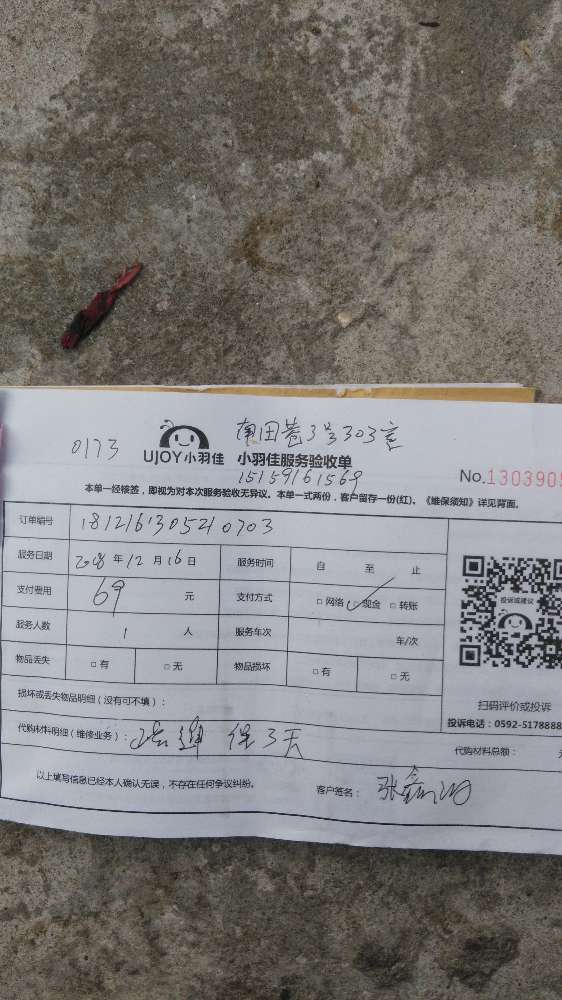 0173 南田巷3号303室
UJOY小羽佳 小羽佳服务验收单
15159161569
No.1303905
本单一经核签，即视为对本次服务验收无异议。本单一式两份，客户留存一份(红)。《维保须知》详见背面。
订单编号 1812161305210703
服务日期 2018 年 12 月 16 日 服务时间 自 至 止
支付费用 69 元 支付方式 □ 网络 □ 现金 □ 转账
投诉或建议
服务人数 1 人 服务车次 车/次
物品丢失 □ 有 □ 无 物品损坏 □ 有 □ 无
损坏或丢失物品明细（没有可不填）：
扫码评价或投诉
投诉电话：0592-5178888
代购材料明细（维修业务）： 保3天 代购材料总额：
以上填写信息已经本人确认无误，不存在任何争议纠纷。 客户签名： 张